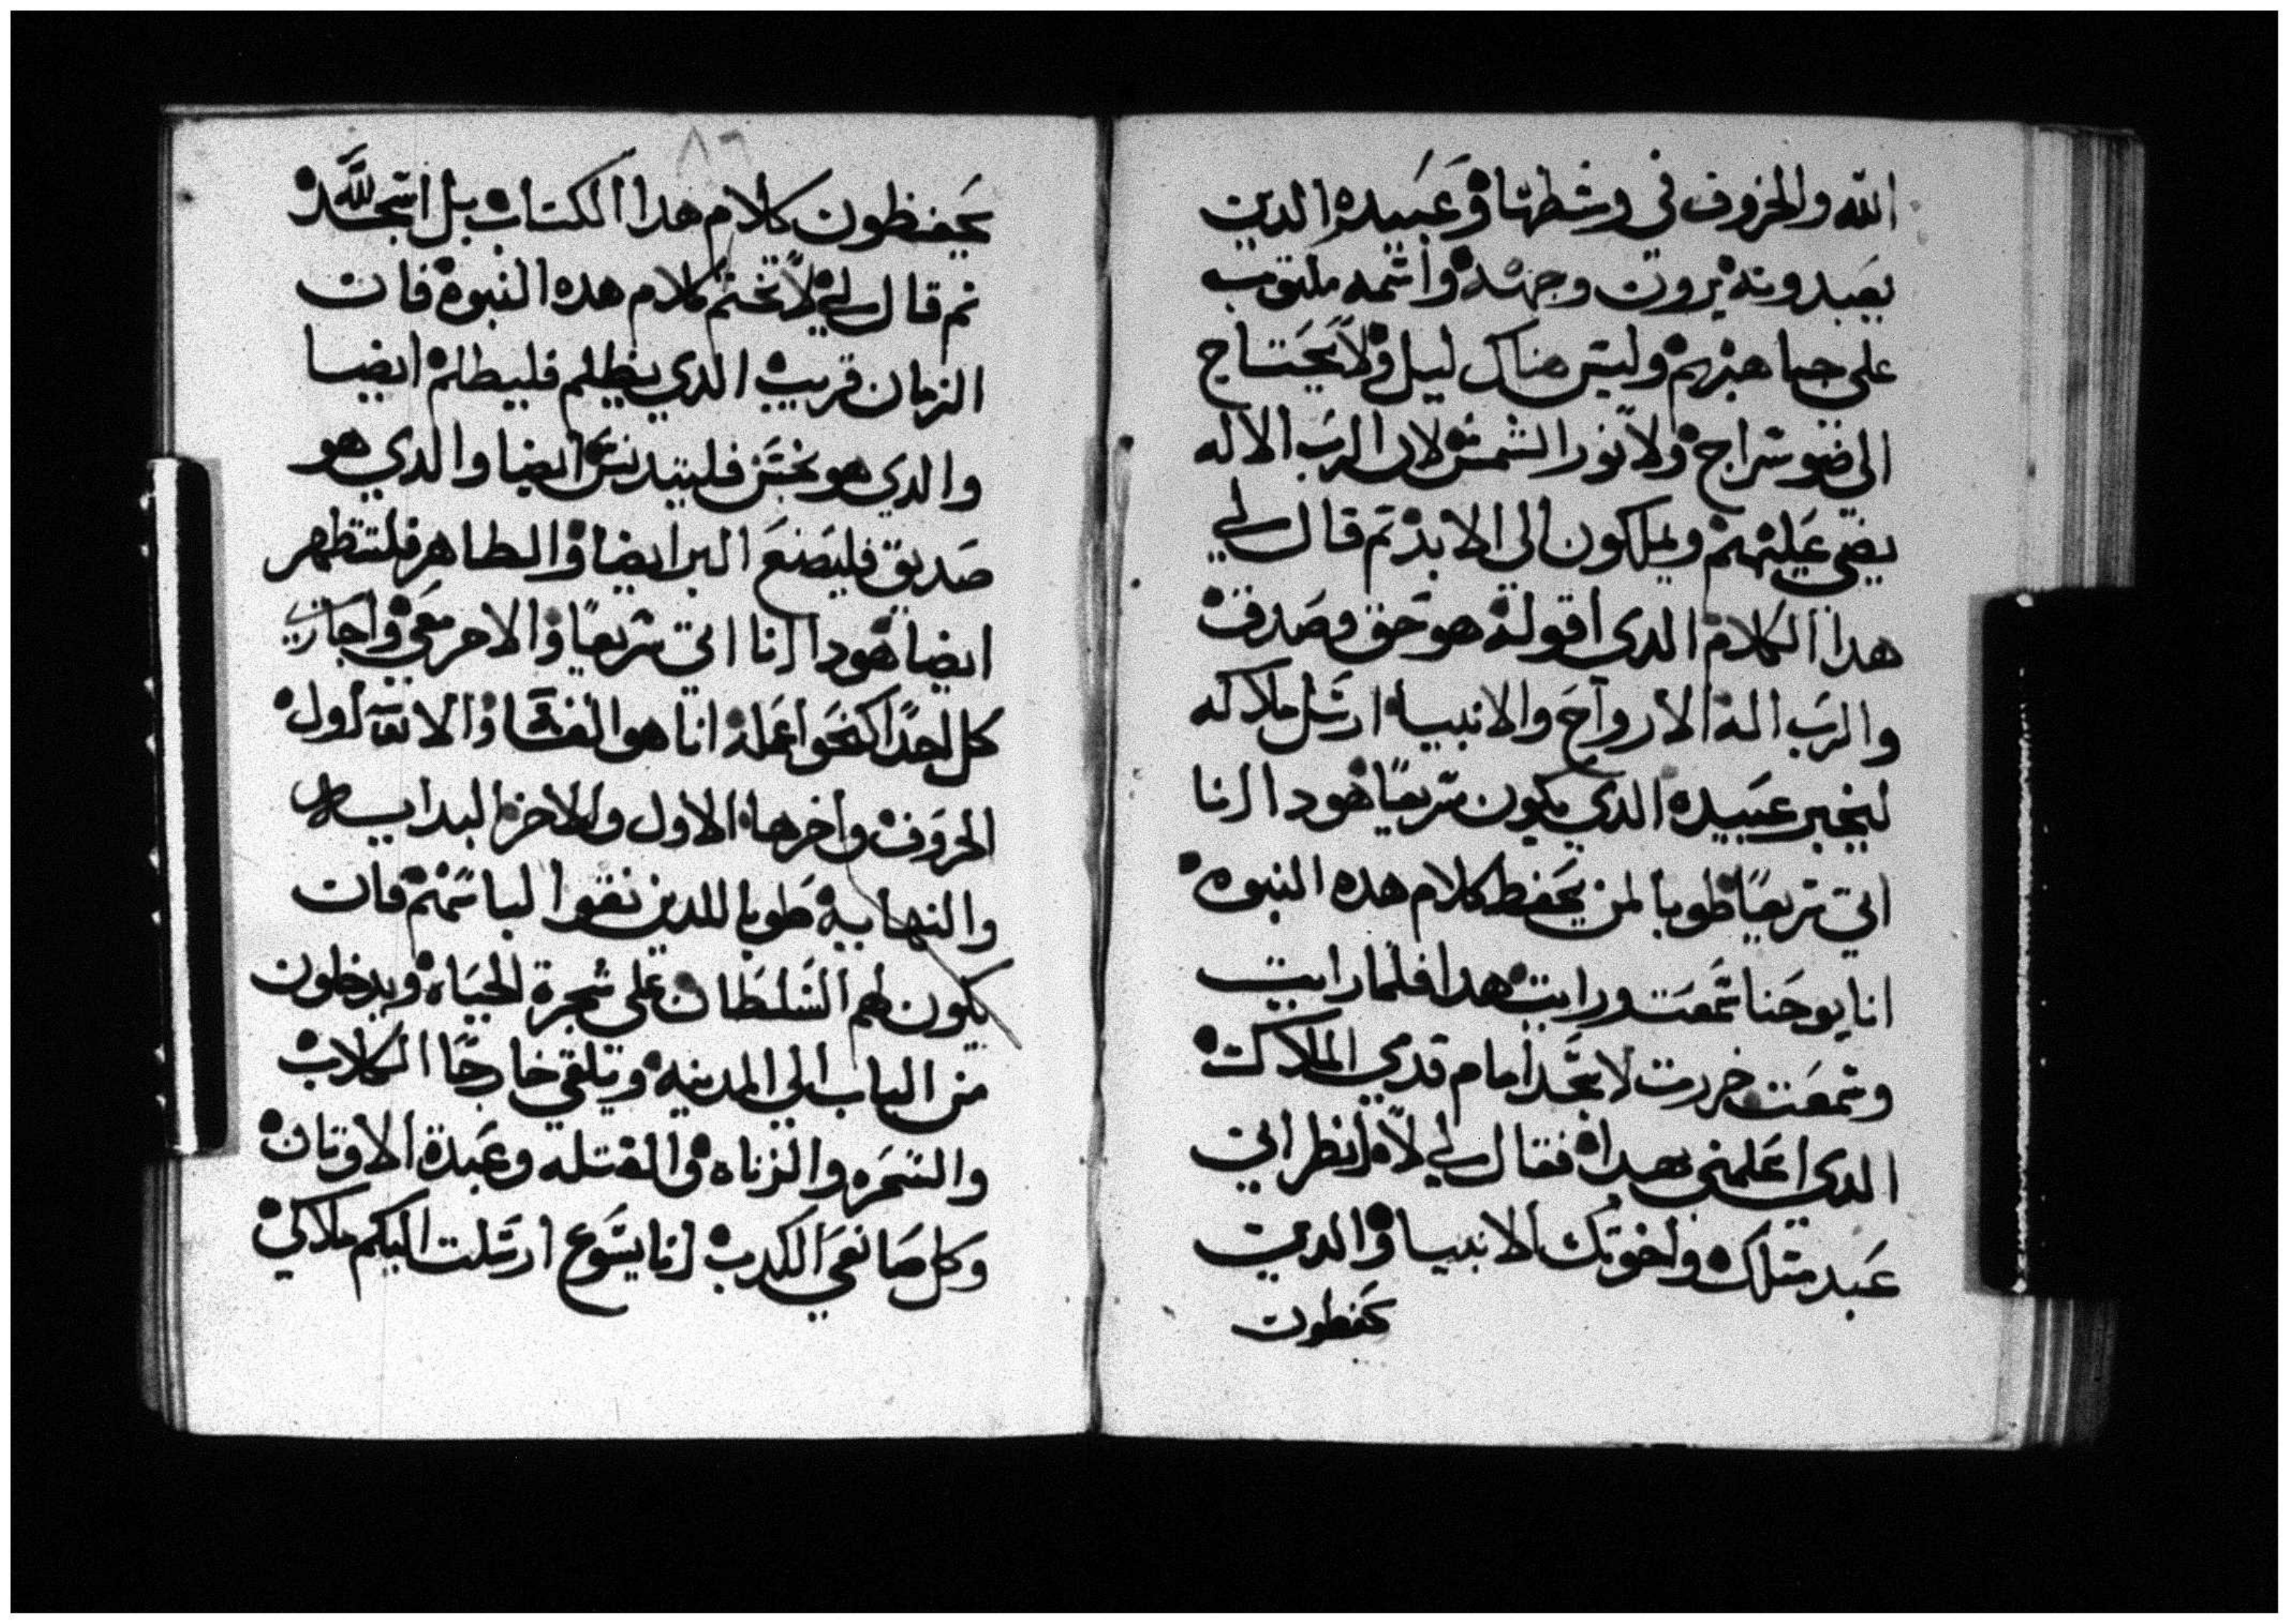 الله والخروف في وسطها وعبيده الدين
يعبدونه يرون وجهه واسمه مكتوب
على جباههم وليس هناك ليل ولا يحتاج
الي ضو سراج ولا نور الشمس لان الرب الاله
يضي عليهم ويملكون الى الابد تم قال لي
هدا الكلام الدي اقوله هو حق وصدق
والرب اله الارواح والانبيا ارسل ملاكه
ليخبر عبيده الدي يكون سريعًا هودا انا
اتي سريعًا طوبا لمن يحفظ كلام هده النبوه
انا يوحنا سمعت ورايت هدا فلما رايت
وسمعت خررت لاسجد امام قدمي الملاك
الدي اعلمني بهدا فقال لي لا انظر اني
عبد متلك واخوتك الانبيا والدين
يحفظون
٨٦
يحفظون كلام هدا الكتاب بل اسجد لله
تم قال لي لا تختم كلام هده النبوه فان
الزمان قريب الدي يظلم فليظلم ايضا
والدي هو نجس فليتدنس ايضا والدي هو
صديق فليصنع البر ايضا والطاهر فليتطهر
ايضا هودا انا اتي سريعًا والاجر معي واجازي
كل احدًا كنحو اعمله انا هو الفا والاو اول
الحروف واخرها الاول والاخر البدايه
والنهايه طوبا للدين نقوا لباسهم فان
يكون لهم السلطان على شجرة الحياه ويدخلون
من الباب الي المدينه ويلقي خارجًا الكلاب
والسحره والزناه والقتله وعبدة الاوتان
وكل صانعي الكدب انا يسوع ارسلت اليكم ملاكي